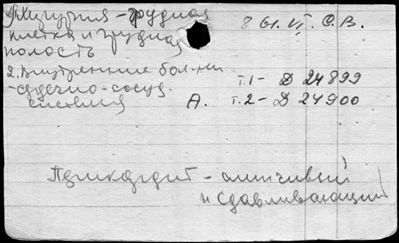 1. Хирургия - грудная
клетка и грудная
полость
8 61. VI. О.В.
2. Внутренние бол-ни
- сердечно-сосуд.
система
А.
т.1 - Д 24899
т.2 - Д 24900
Перикардит - слипчивый
и сдавливающий